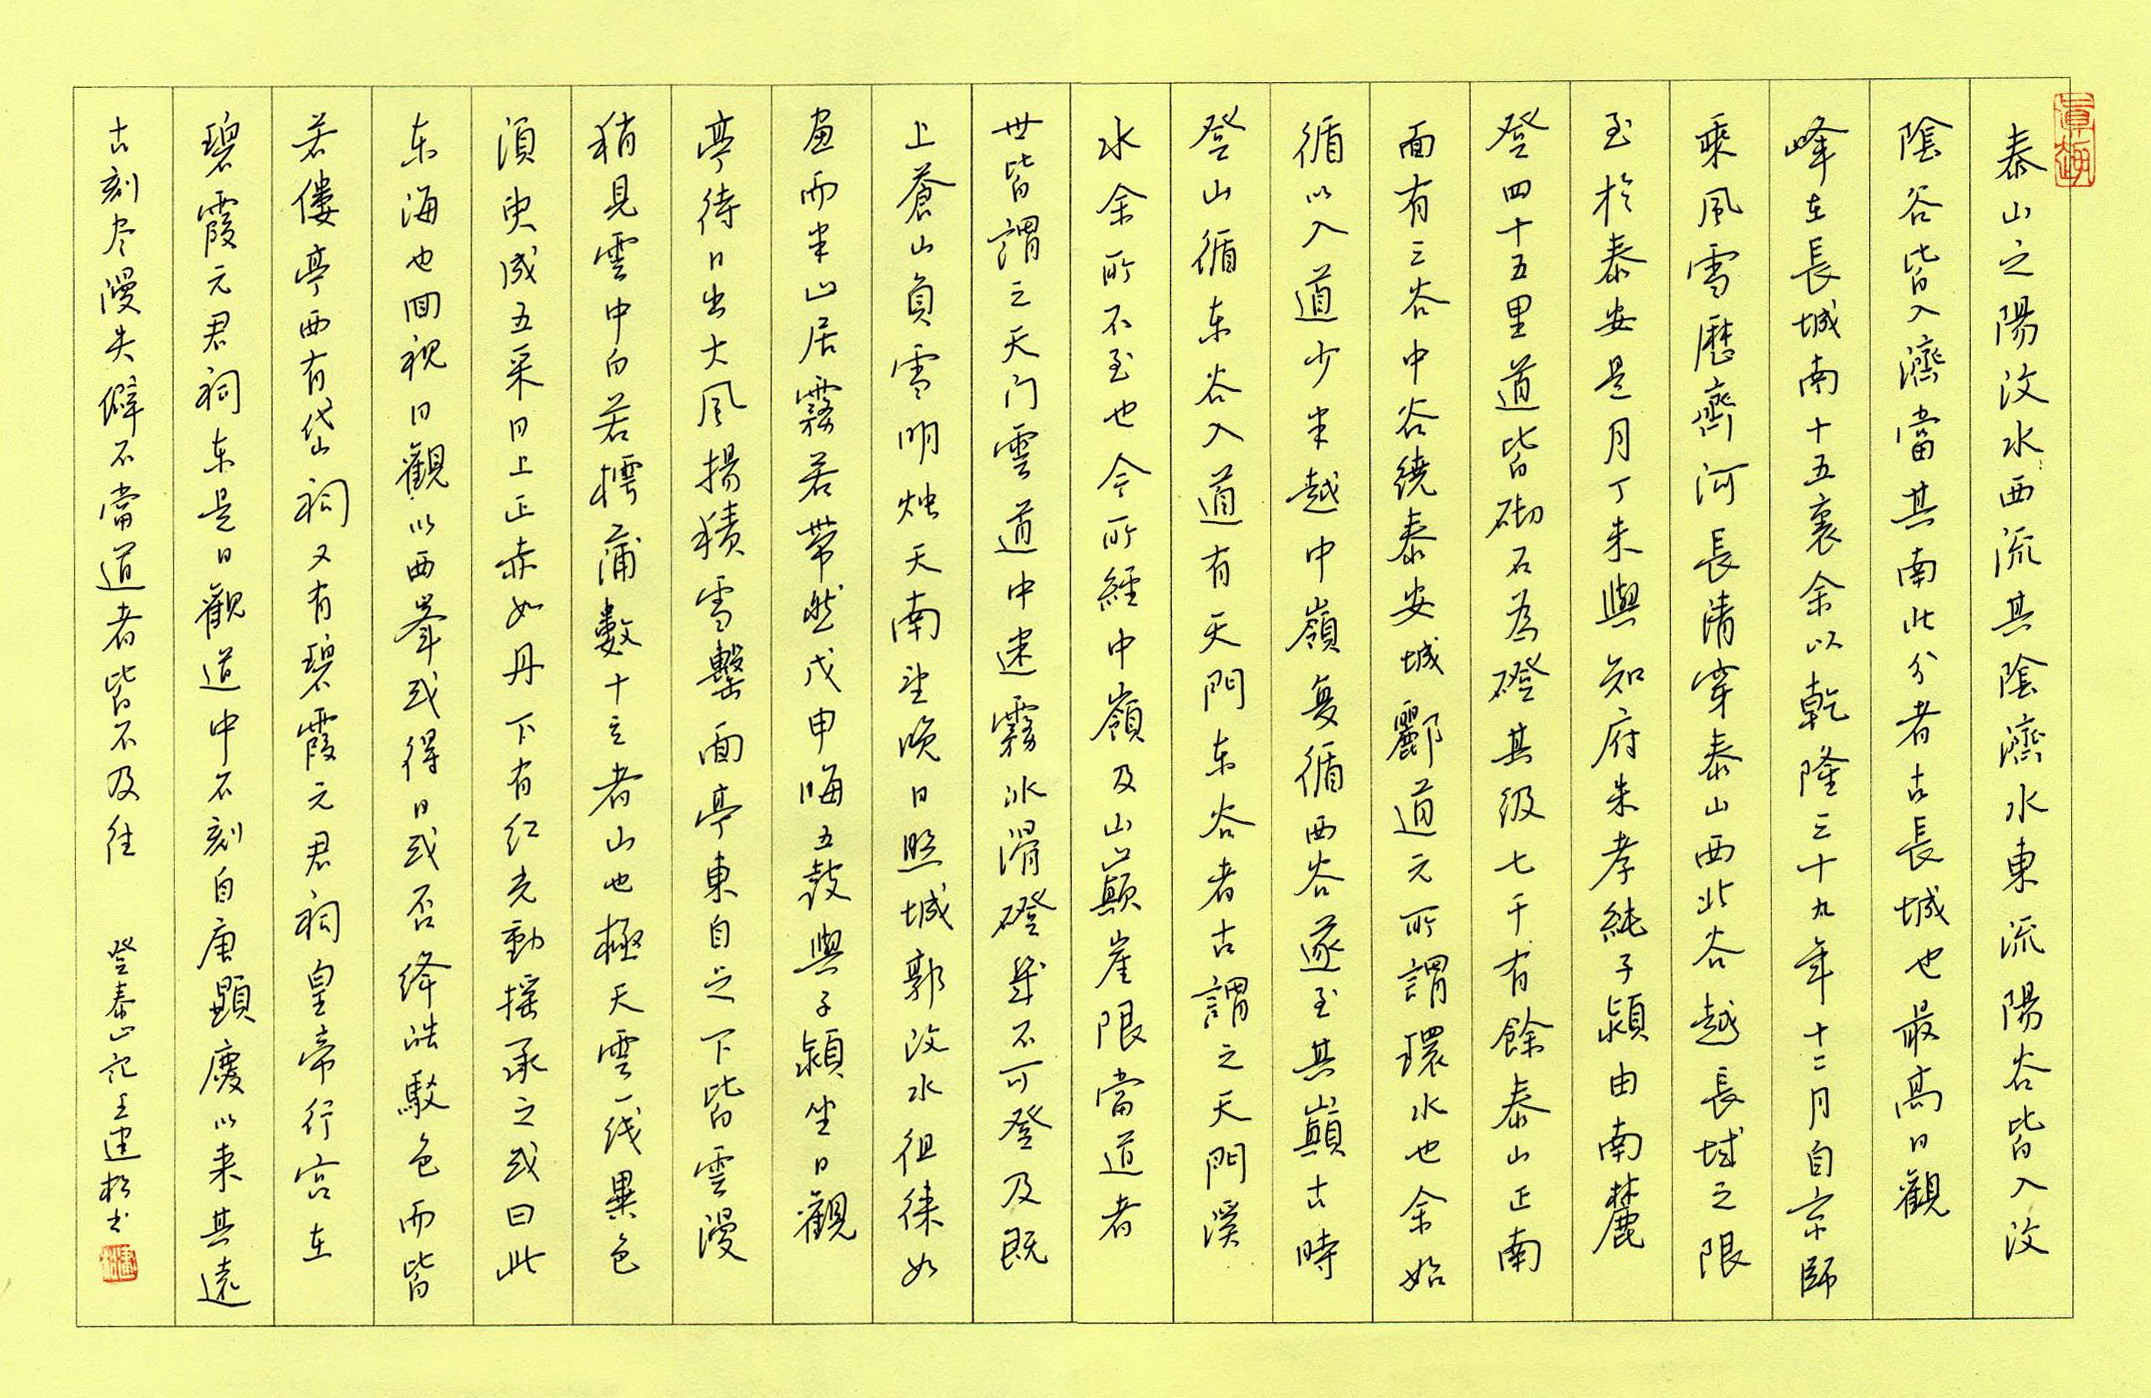 泰山之陽汶水西流其陰濟水東流陽谷皆入汶
陰谷皆入濟當其南北分者古長城也最高日觀
峰在長城南十五裏余以乾隆三十九年十二月自京師
乘風雪歷齊河長清穿泰山西北谷越長城之限
至於泰安是月丁未與知府朱孝純子潁由南麓
登四十五里道皆砌石為磴其级七千有餘泰山正南
面有三谷中谷繞泰安城酈道元所謂環水也余始
循以入道少半越中嶺复循西谷遂至其巔古時
登山循东谷入道有天門东谷者古謂之天門溪
水余所不至也今所經中嶺及山巔崖限當道者
世皆謂之天门雲道中迷霧冰滑磴幾不可登及既
上蒼山負雪明烛天南望晚日照城郭汶水徂徕如
畫而半山居霧若帶然戊申晦五鼓與子潁坐日觀
亭待日出大风揚積雪擊面亭東自足下皆雲漫
稍見雲中白若樗蒲數十立者山也極天雲一线異色
須臾成五采日上正赤如丹下有红光動摇承之或曰此
东海也回視日觀以西峯或得日或否绛皓駁色而皆
若僂亭西有岱祠又有碧霞元君祠皇帝行宫在
碧霞元君祠东是日觀道中石刻自唐顯慶以来其遠
古刻尽漫失僻不當道者皆不及往
登泰山记王建松书